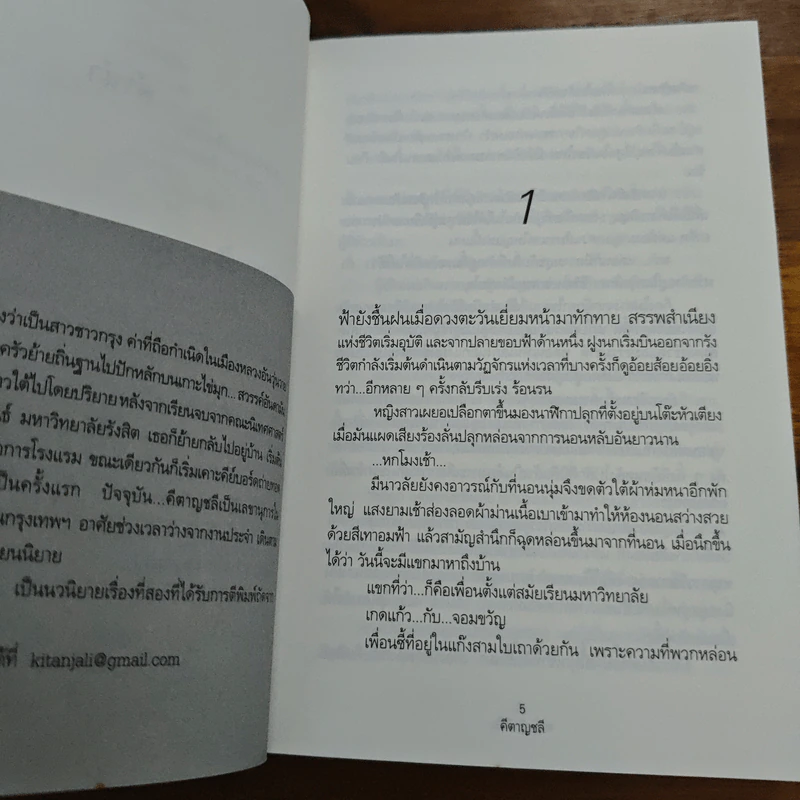 งว่าเป็นสาวชาวกรุง ค่าที่ถือกำเนิดในเมืองหลวงอันวุ่นวาย
ครัวย้ายถิ่นฐานไปปักหลักบนเกาะไข่มุก... สวรรค์อันดามัน
าวใต้ไปโดยปริยาย หลังจากเรียนจบจากคณะนิเทศศาสตร์
ธ์ มหาวิทยาลัยรังสิต เธอก็ย้ายกลับไปอยู่บ้าน เริ่มต้น
อการโรงแรม ขณะเดียวกันก็เริ่มเคาะคีย์บอร์ดถ่ายทอด
ป็นครั้งแรก ปัจจุบัน...คีตาญชลีเป็นเลขานุการใน
นกรุงเทพฯ อาศัยช่วงเวลาว่างจากงานประจำ เดินตาม
ยนนิยาย
เป็นนวนิยายเรื่องที่สองที่ได้รับการตีพิมพ์
ที่ kitanjali@gmail.com
1
ฟ้ายังชื้นฝนเมื่อดวงตะวันเยี่ยมหน้ามาทักทาย สรรพสำเนียง
แห่งชีวิตเริ่มอุบัติ และจากปลายขอบฟ้าด้านหนึ่ง ฝูงนกเริ่มบินออกจากรัง
ชีวิตกำลังเริ่มต้นดำเนินตามวัฏจักรแห่งเวลาที่บางครั้งก็ดูอ้อยส้อยอ้อยอิ่ง
ทว่า...อีกหลาย ๆ ครั้งกลับรีบเร่ง ร้อนรน
หญิงสาวเผยอเปลือกตาขึ้นมองนาฬิกาปลุกที่ตั้งอยู่บนโต๊ะหัวเตียง
เมื่อมันแผดเสียงร้องลั่นปลุกหล่อนจากการนอนหลับอันยาวนาน
...หกโมงเช้า...
มีนาวลัยยังคงอาวรณ์กับที่นอนนุ่มจึงขดตัวใต้ผ้าห่มหนาอีกพัก
ใหญ่ แสงยามเช้าส่องลอดผ้าม่านเนื้อเบาเข้ามาทำให้ห้องนอนสว่างสวย
ด้วยสีเทาอมฟ้า แล้วสามัญสำนึกก็ฉุดหล่อนขึ้นมาจากที่นอน เมื่อนึกขึ้น
ได้ว่า วันนี้จะมีแขกมาหาถึงบ้าน
แขกที่ว่า...ก็คือเพื่อนตั้งแต่สมัยเรียนมหาวิทยาลัย
เกดแก้ว...กับ...จอมขวัญ
เพื่อนซี้ที่อยู่ในแก๊งสามใบเถาด้วยกัน เพราะความที่พวกหล่อน
5
คีตาญชลี